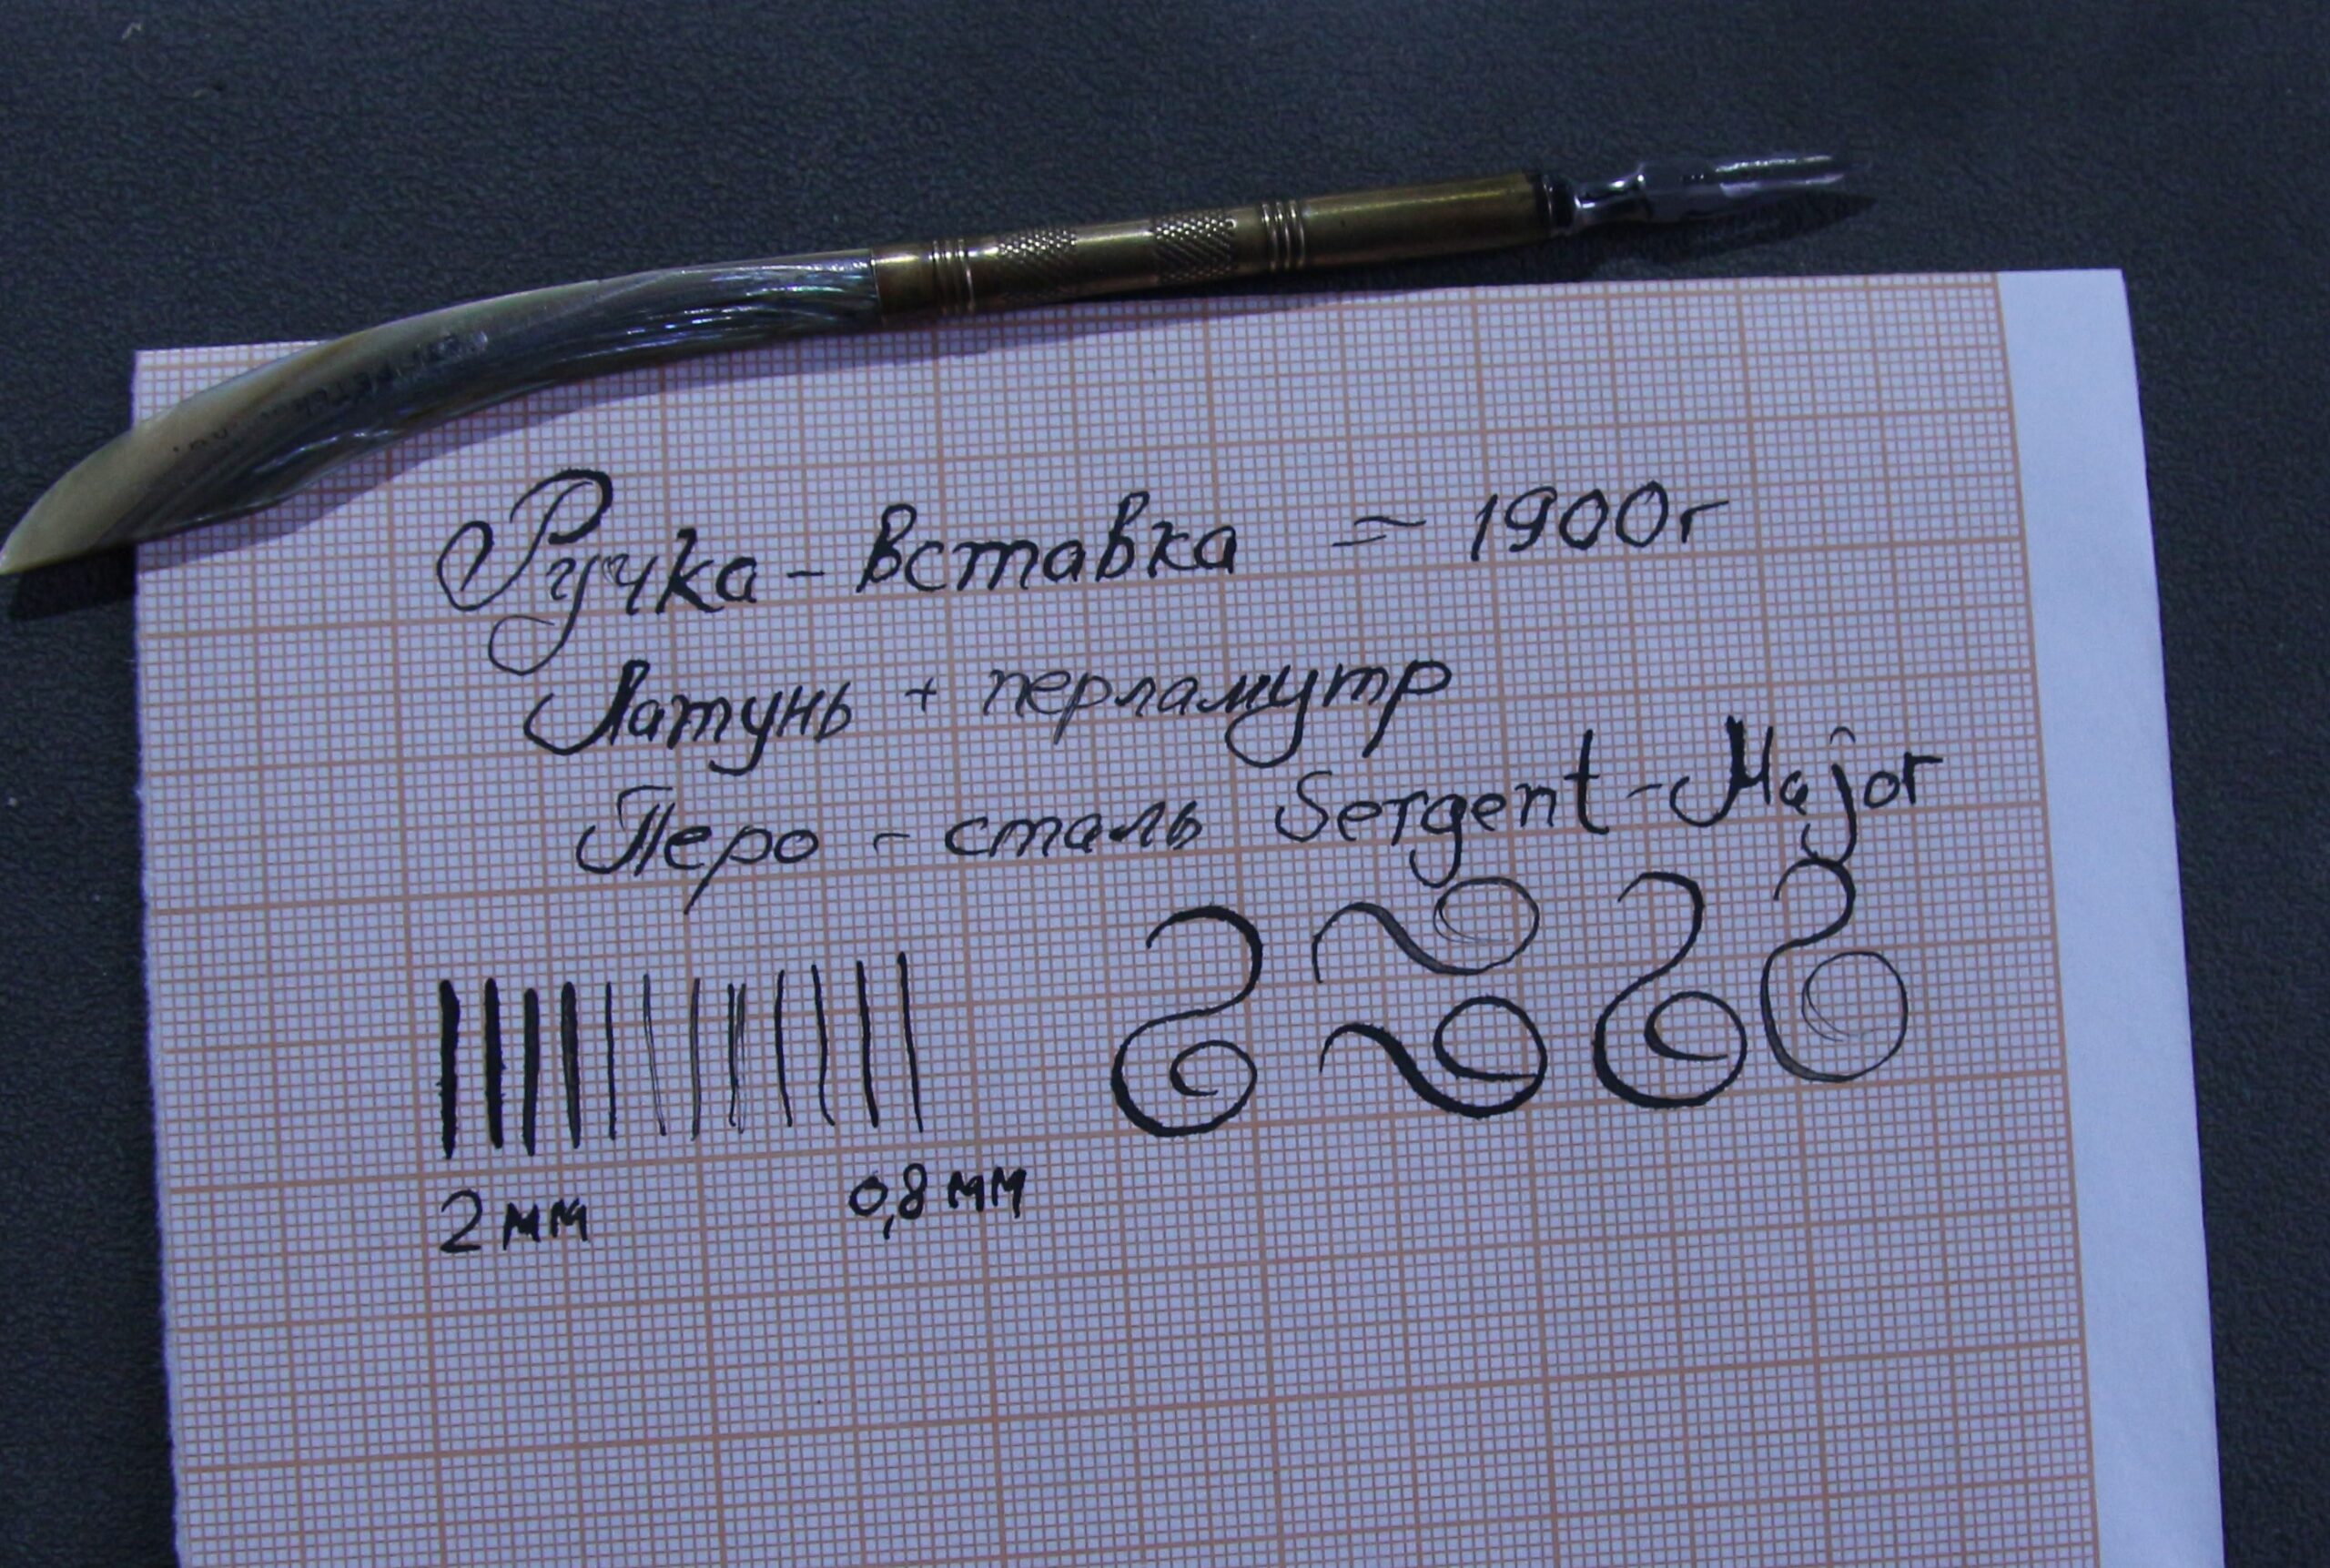 Ручка - вставка = 1900г
Латунь + перламутр
Перо - сталь Sergent-Major
2 мм 0,8 мм